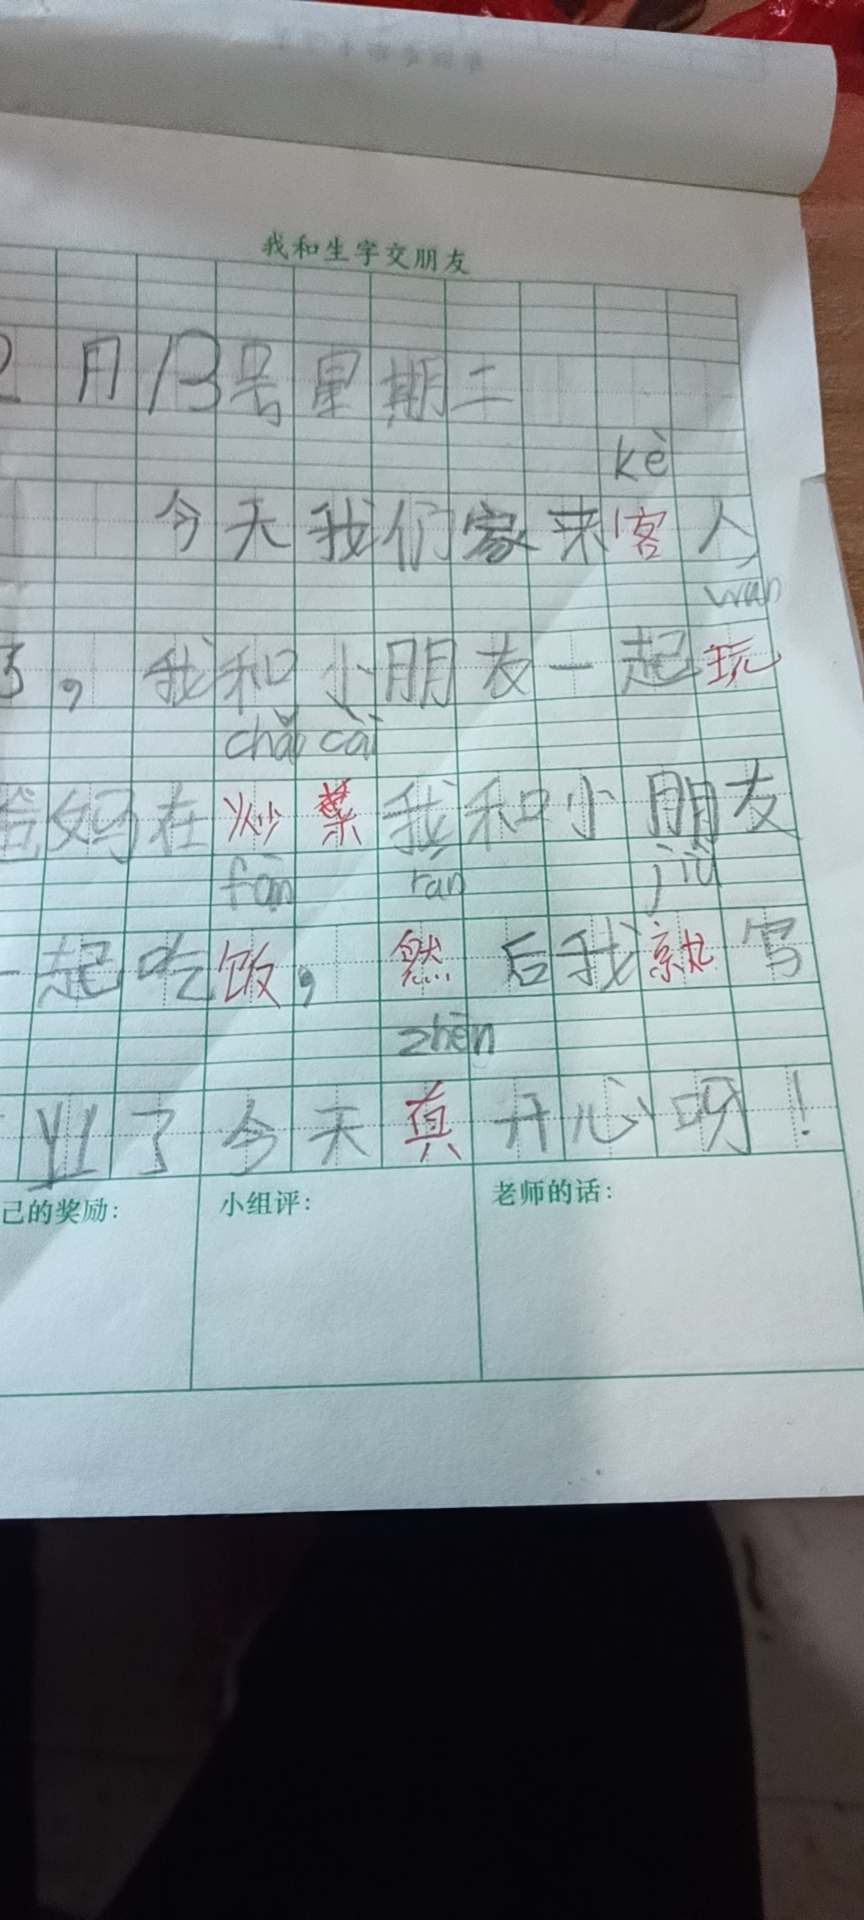 我和生字交朋友
2月13号星期二
kè
今天我们家来客人
wán
了，我和小朋友一起玩
chǎo cài
妈在炒菜我和小朋友
fàn rán jiù
一起吃饭，然后我就写
zhēn
业了今天真开心呀！
己的奖励：
小组评：
老师的话：